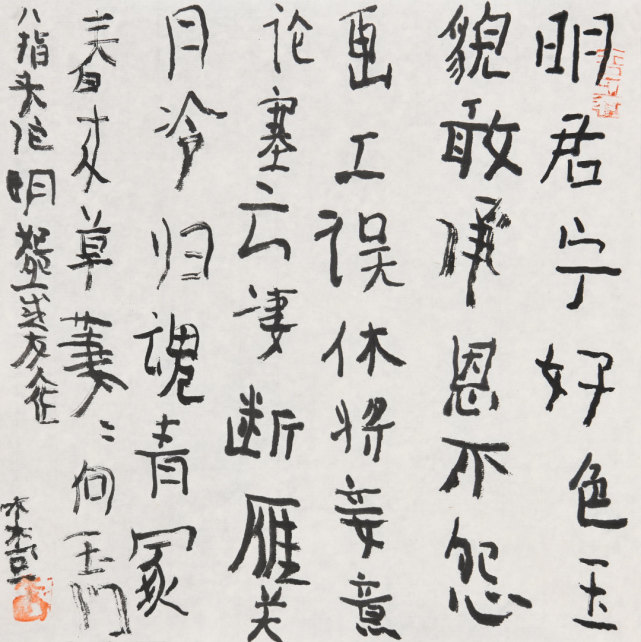 明君宁好色玉
貌敢承恩不怨
画工误休将妾意
论塞云凄断雁关
月冷归魂青冢
春来草萋〻向玉门
八指头陀明怨或友人作